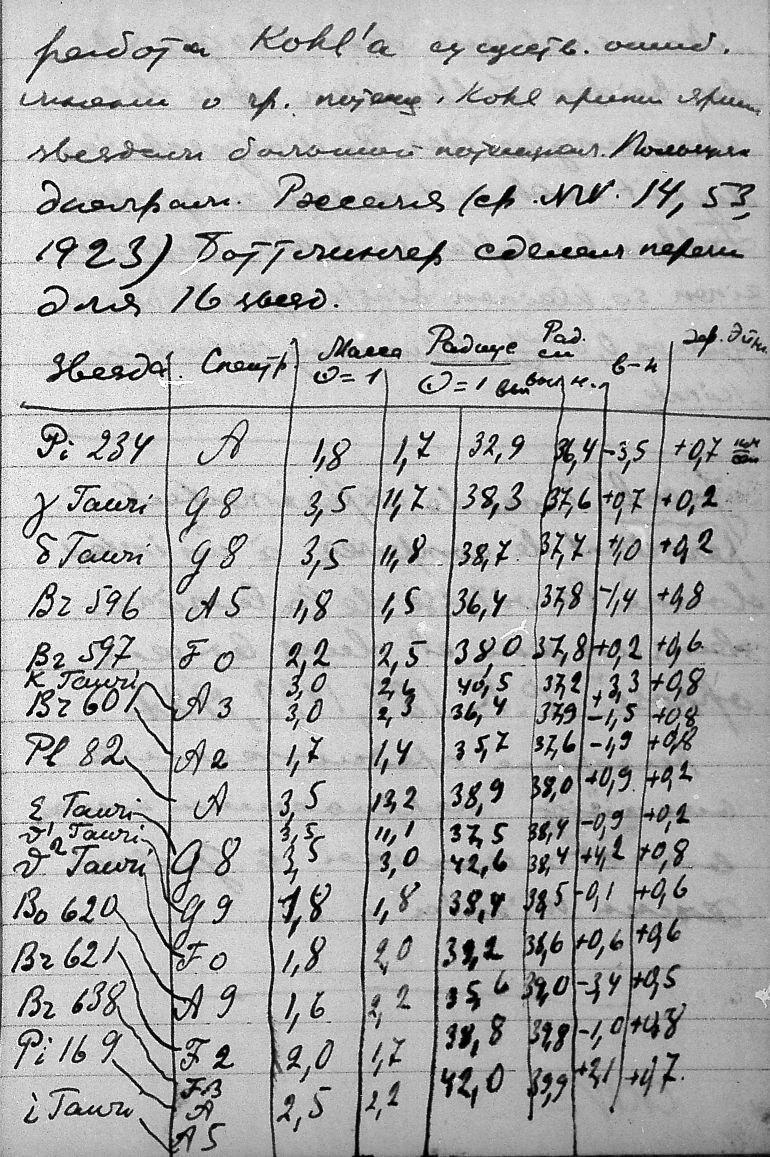 работа Kohl'а существ. ошиб.
о гр. потенц. Kohl
звездам большой потенциал.
диаграм. Рэсселя (ср. NW. 14, 53,
1923) Боттлингер сделал
для 16 звезд.
Звезда Спектр. Масса Радиус Рад. в-н
☉=1 ☉=1 выч. н.
Pi 234 A 1,8 1,7 32,9 36,4 -3,5 +0,7
γ Tauri G8 3,5 11,7 38,3 37,6 +0,7 +0,2
δ Tauri G8 3,5 11,8 38,7 37,7 +1,0 +0,2
Br 596 A5 1,8 1,5 36,4 37,8 -1,4 +0,8
Br 597 F0 2,2 2,5 38,0 37,8 +0,2 +0,6
κ Tauri A3 3,0 2,6 40,5 37,2 +3,3 +0,8
Br 601 A2 3,0 2,3 36,4 37,9 -1,5 +0,8
Pl 82 A 1,7 1,4 35,7 37,6 -1,9 +0,8
ε Tauri G8 3,5 13,2 38,9 38,0 +0,9 +0,2
ϑ¹ Tauri G9 3,5 11,1 37,5 38,4 -0,9 +0,2
ϑ² Tauri F0 3,5 3,0 42,6 38,4 +4,2 +0,8
Bo 620 A9 1,8 1,8 38,4 38,5 -0,1 +0,6
Br 621 F2 1,8 2,0 39,2 38,6 +0,6 +0,6
Br 638 F3 1,6 2,2 35,6 39,0 -3,4 +0,5
Pi 169 A 2,0 1,7 38,8 39,8 -1,0 +0,8
i Tauri A5 2,5 2,2 42,0 39,9 +2,1 +0,7